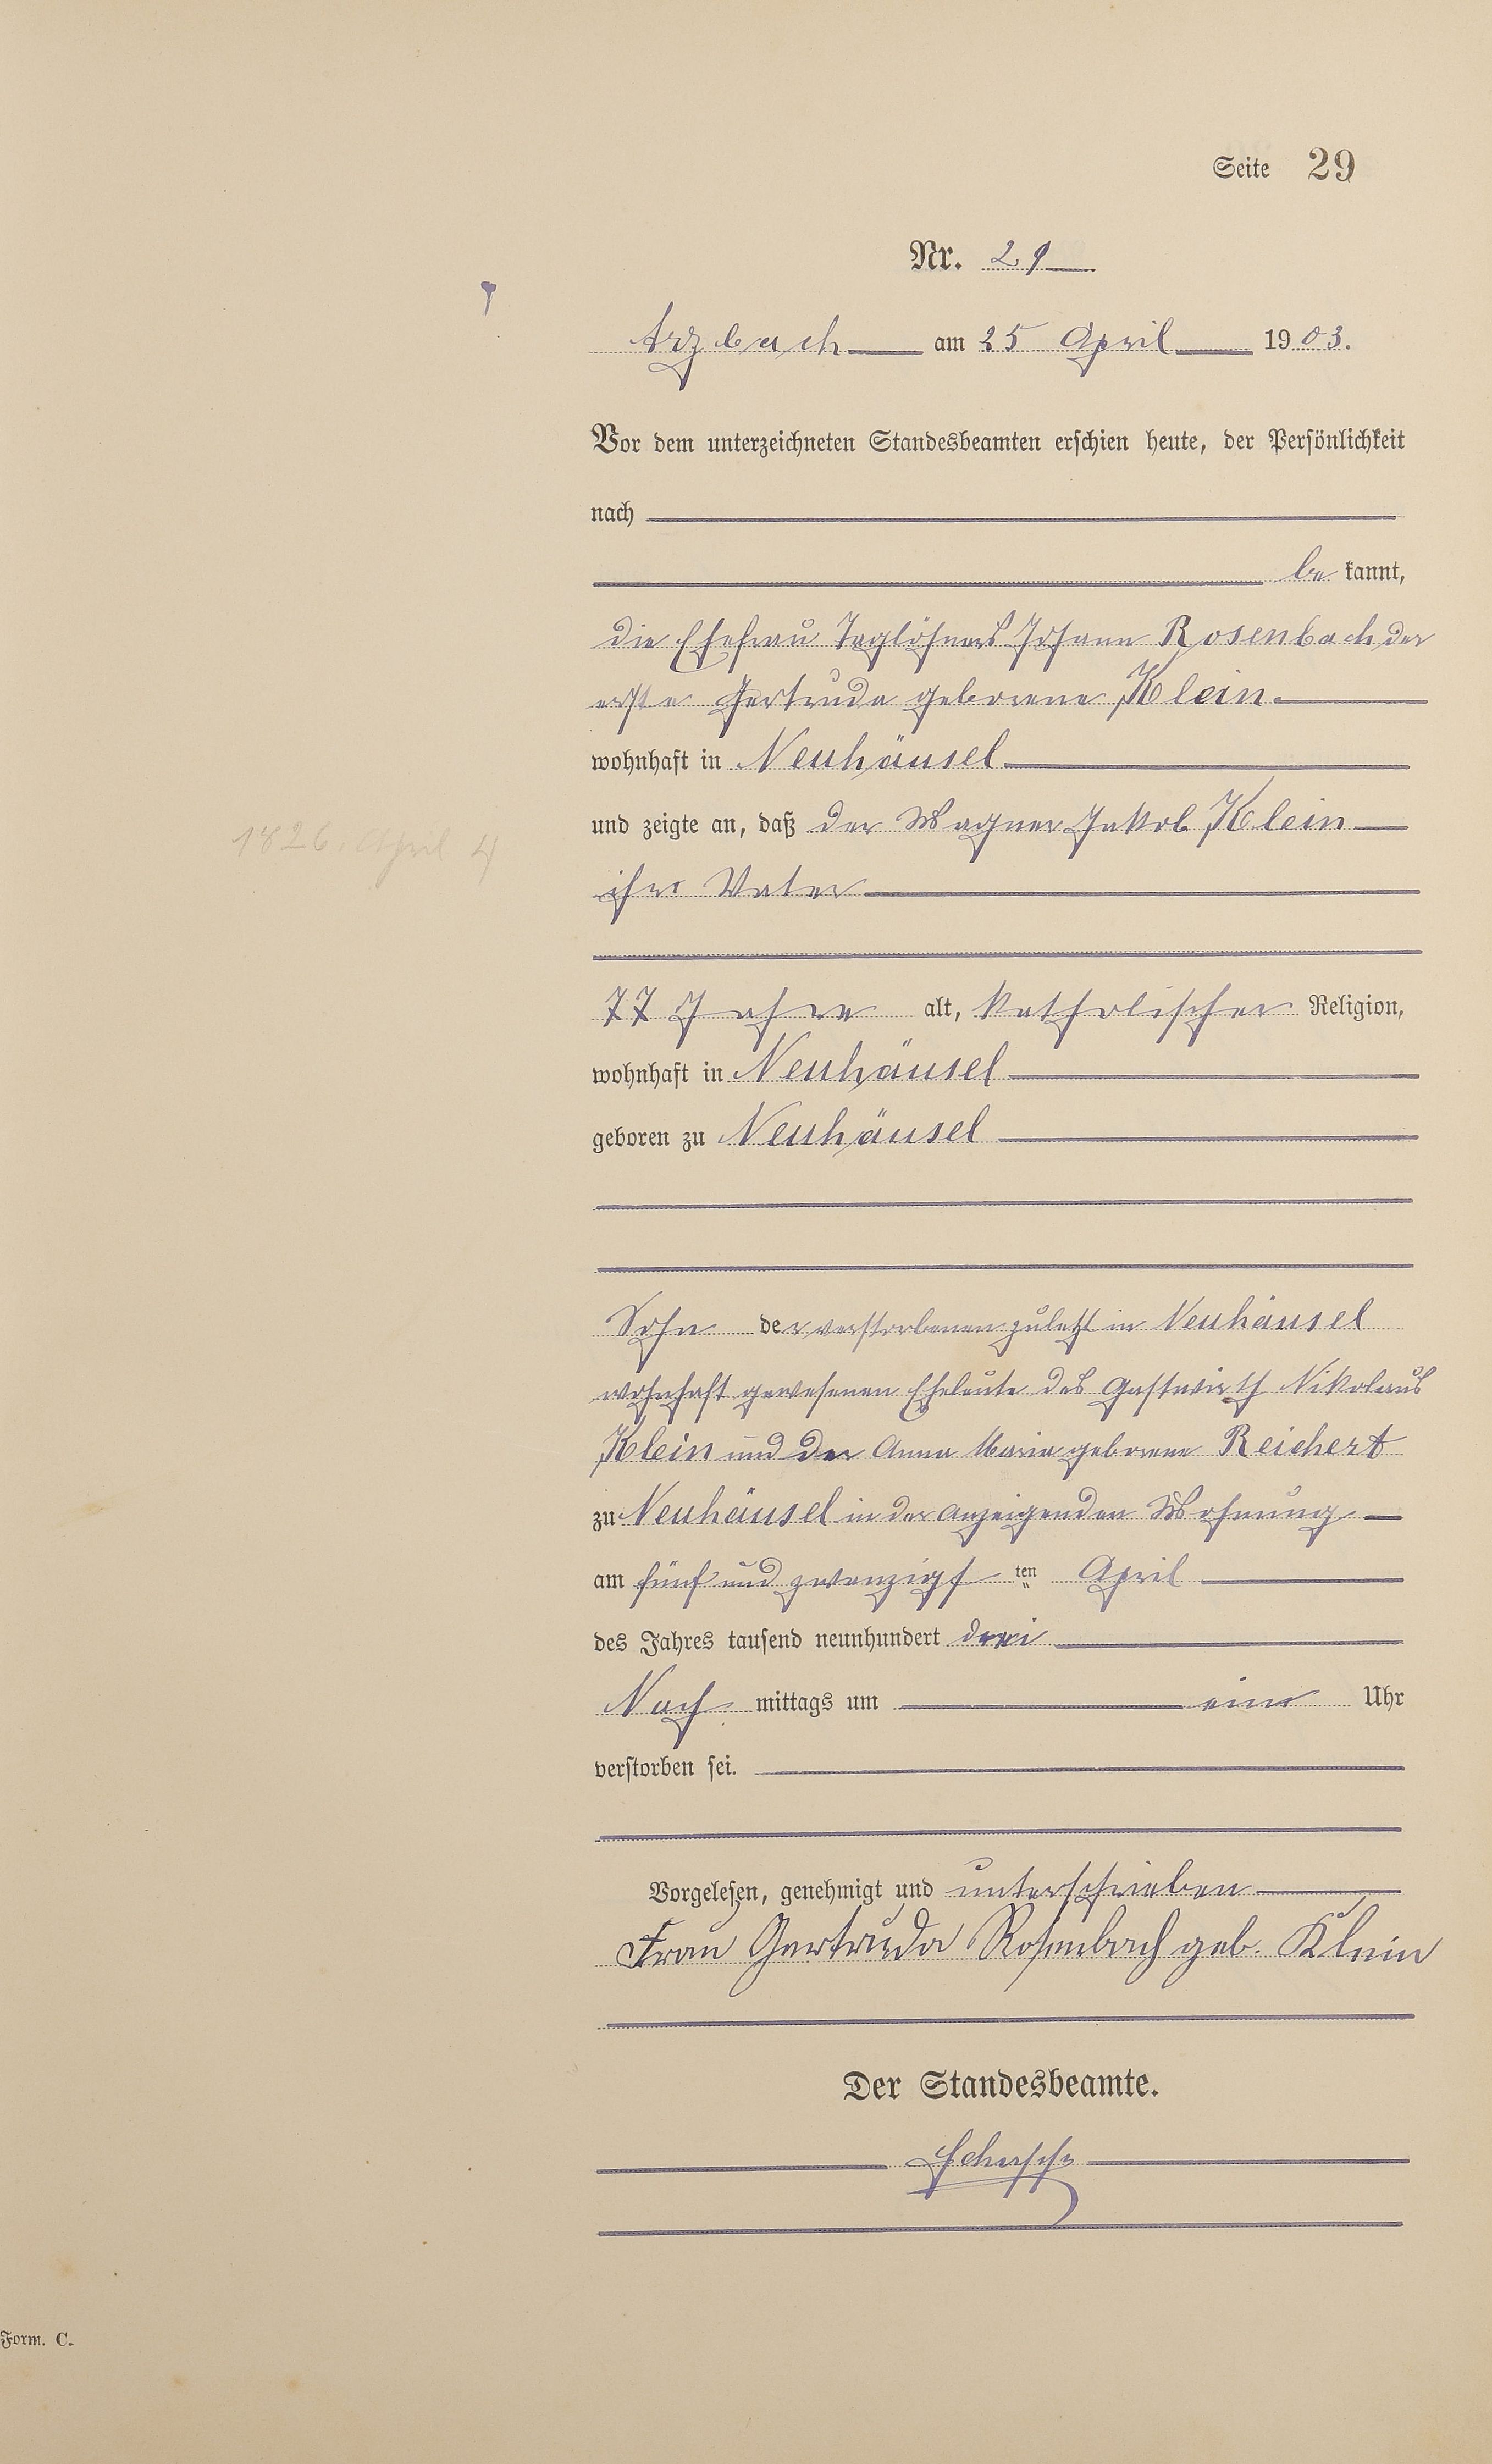 Seite 29
Nr. 29
Arzbach am 25 April 1903.
Vor dem unterzeichneten Standesbeamten erschien heute, der Persönlichkeit
nach
be kannt,
die Ehefrau Taglöhners Johann Rosenbach der
erste Gertruda geborene Klein.
wohnhaft in Neuhäusel
und zeigte an, daß der Wagner Jakob Klein
1826. April 4
ihr Vater
77 Jahre alt, katholischer Religion,
wohnhaft in Neuhäusel
geboren zu Neuhäusel
Sohn der verstorbenen zuletzt in Neuhäusel
wohnhaft gewesenen Eheleute des Gastwirth Nikolaus
Klein und der Anna Maria geborene Reichert
zu Neuhäusel in der anzeigenden Wohnung
am fünf und zwanzigs ten April
des Jahres tausend neunhundert drei
Nach mittags um ein Uhr
verstorben sei.
Vorgelesen, genehmigt und unterschrieben
Frau Gertruda Rosenbach geb. Klein
Der Standesbeamte.
Form. C.